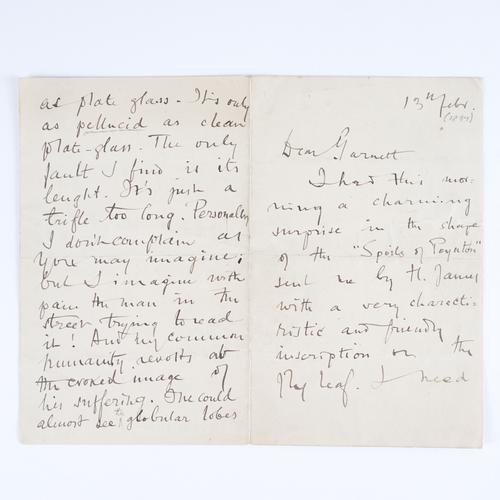 13th Febr.
(1897)
Dear Garnett
I had this mor-
ning a charming
surprise in the shape
of the "Spoils of Poynton"
sent me by H. James
with a very characte-
ristic and friendly
inscription on the
fly leaf. I need
as plate glass. It's only
as pellucid as clean
plate-glass. The only
fault I find is its
lenght. It's just a
trifle too long. Personally
I don't complain as
You may imagine;
but I imagine with
pain the man in the
street trying to read
it! And my common
humanity revolts at
the evoked image of
his suffering. One could
almost see the globular lobes